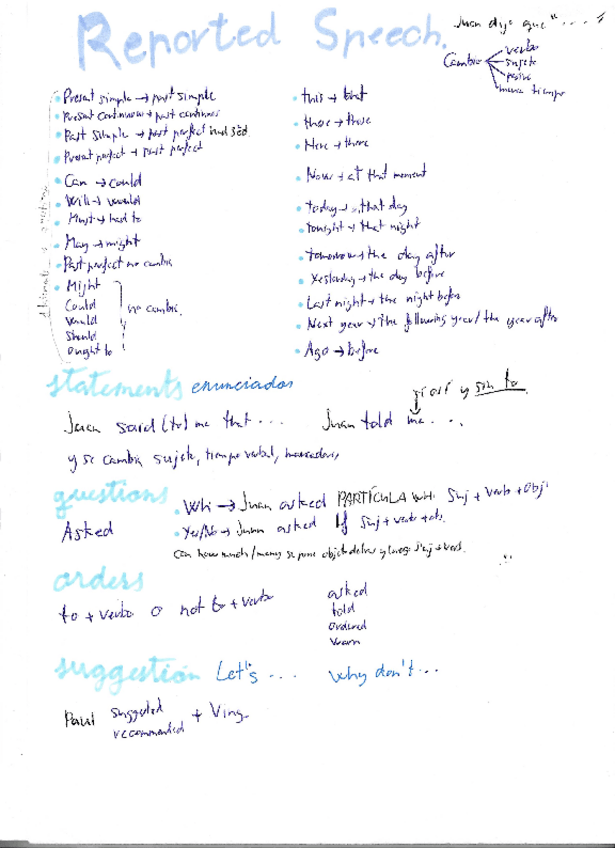 Reported Speech.
Juan dije que "..."
Cambia verbo
sujeto
marca tiempo
Present simple → past simple
Present continuous → past continuous
Past simple → past perfect
Present perfect → past perfect
Can → could
Will → would
Must → had to
May → might
Past perfect no cambia
Might
Could
Would
Should
Ought to
no cambia.
this → that
these → those
Here → there
Now → at that moment
Today → that day
Tonight → that night
Tomorrow → the day after
Yesterday → the day before
Last night → the night before
Next year → the following year / the year after
Ago → before
statements enunciados
y sin to
Juan said (to) me that ... Juan told me ...
y se cambia sujeto, tiempo verbal, marcadores
questions . Wh → Juan asked PARTÍCULA WH. Suj + verb + Obj
Asked . Yes/No → Juan asked If Suj + verb + obj.
Con how much/many se pone objeto detras y luego Suj + verb.
orders
to + verbo o not to + verbo
asked
told
ordered
warn
suggestion Let's ... why don't ...
Paul suggested
recommended + Ving